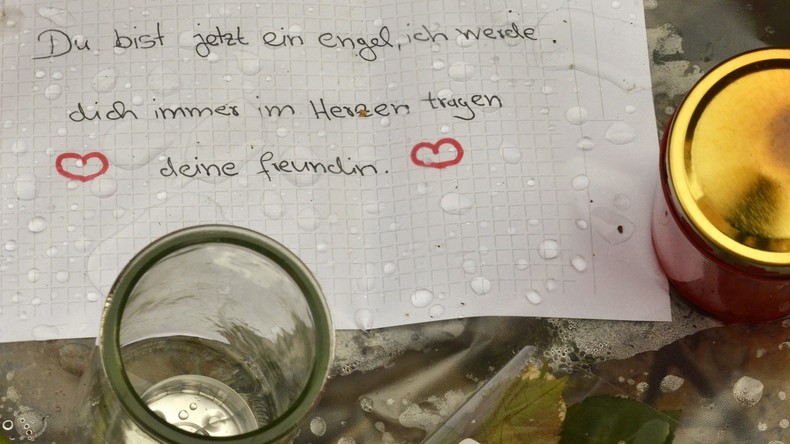 Du bist jetzt ein engel, ich werde.
dich immer im Herzen tragen
deine freundin.